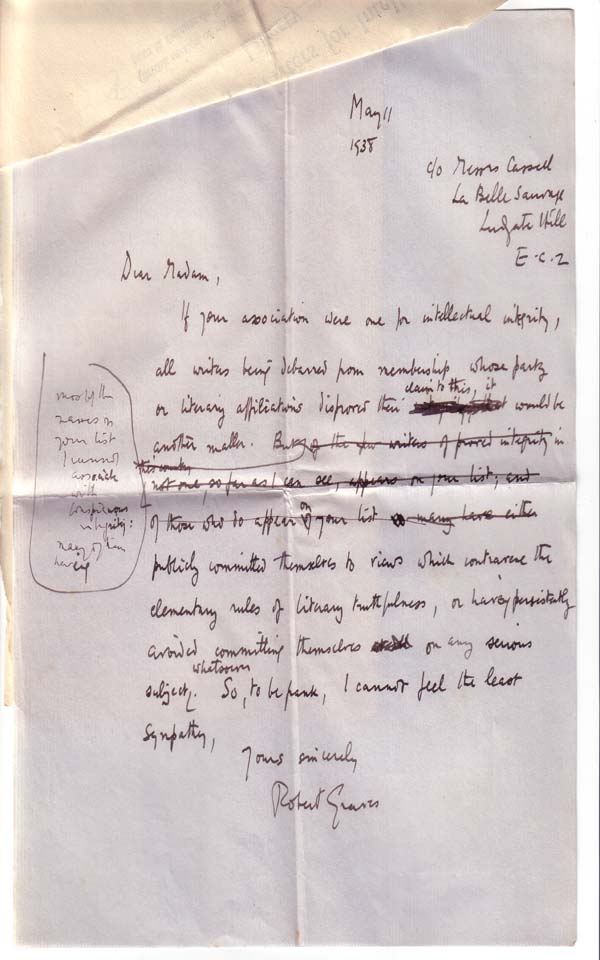 May 11
1938
c/o Messrs Cassell
La Belle Sauvage
Ludgate Hill
E.C.2
Dear Madam,
If your association were one for intellectual integrity,
all writers being debarred from membership whose party
claim to this, it
or literary affiliations disproved their would be
another matter. But of the few writers of proved integrity in
this country
not one, so far as I can see, appears on your list; and
on
of those who do appear of your list so many have either
most of the
names on
your list
I cannot
associate
with
conspicuous
integrity:
many of them
having
publicly committed themselves to views which contravene the
elementary rules of literary truthfulness, or having persistently
avoided committing themselves on any serious
whatsoever
subject. So, to be frank, I cannot feel the least
sympathy,
Yours sincerely
Robert Graves